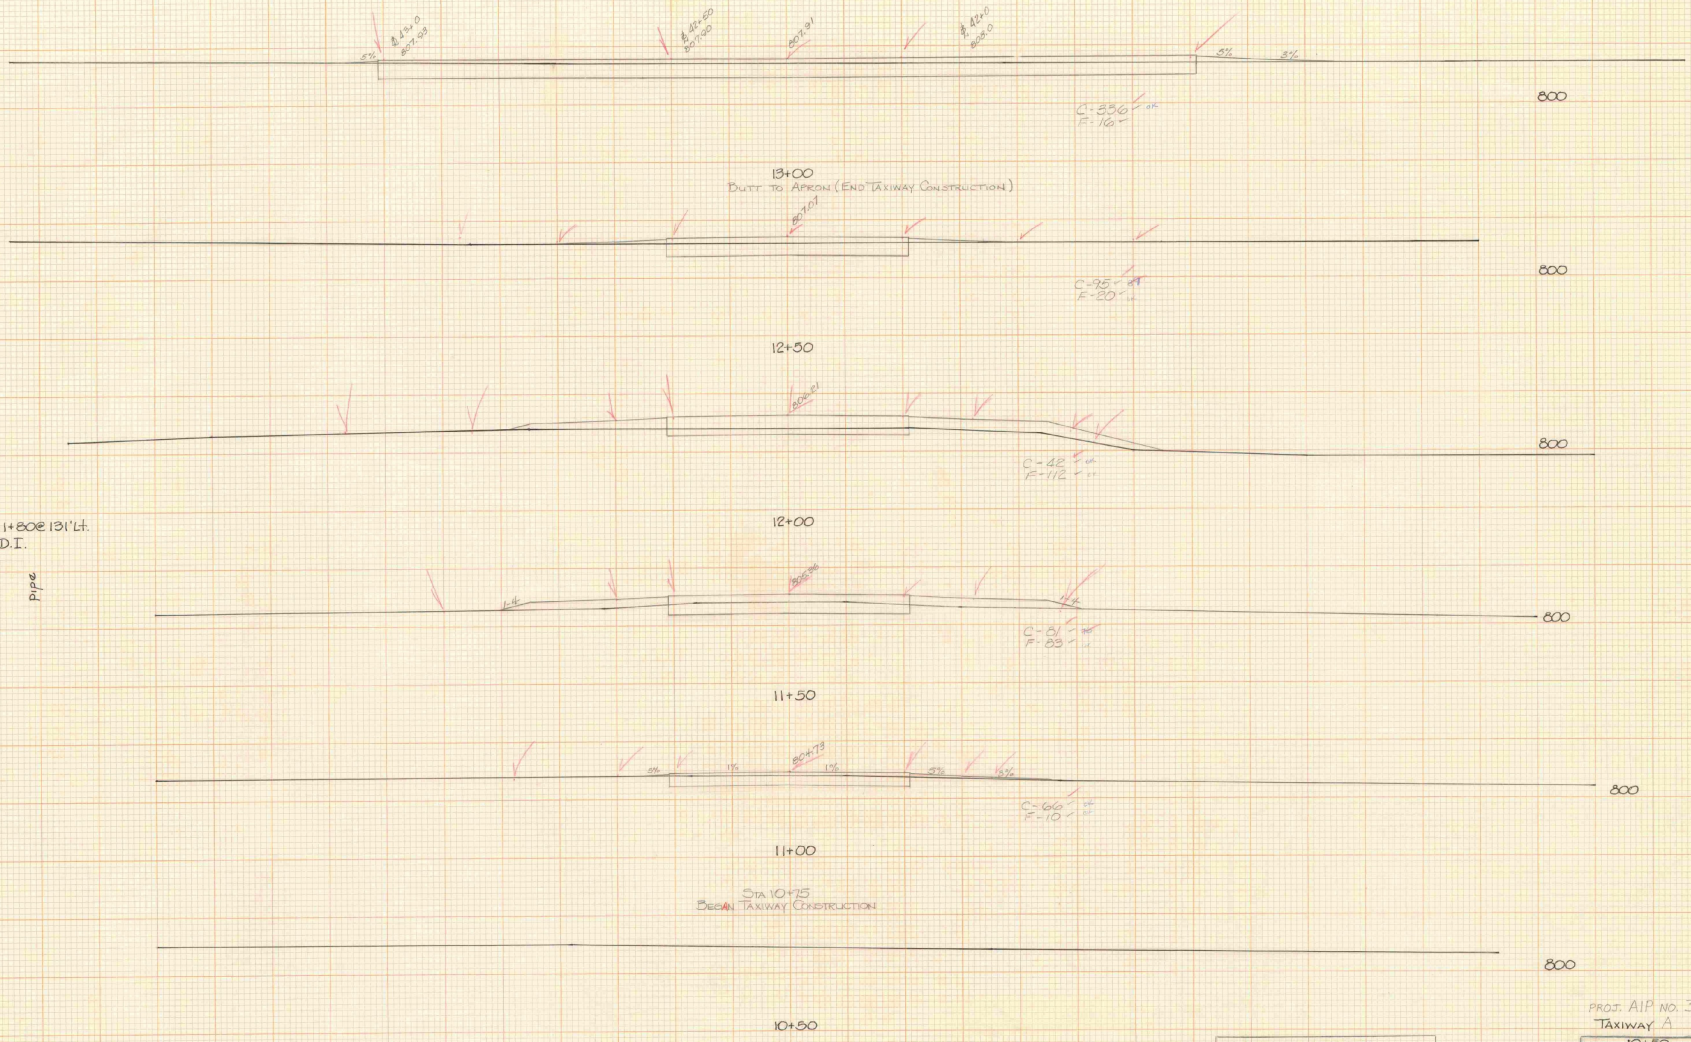 ₵ 43+0
807.93
₵ 42+60
807.90
807.91
₵ 42+0
808.0
5%
5%
3%
800
C-336
F-16
13+00
BUTT TO APRON (END TAXIWAY CONSTRUCTION)
807.07
800
C-95
F-20
12+50
806.21
800
C-42
F-112
12+00
1+80@131'Lt.
D.I.
pipe
1-4
800
C-81
F-83
11+50
804.73
5%
1%
1%
5%
3%
800
C-66
F-10
11+00
STA 10+75
BEGAN TAXIWAY CONSTRUCTION
800
10+50
PROJ. AIP NO. 3
TAXIWAY A
10+50